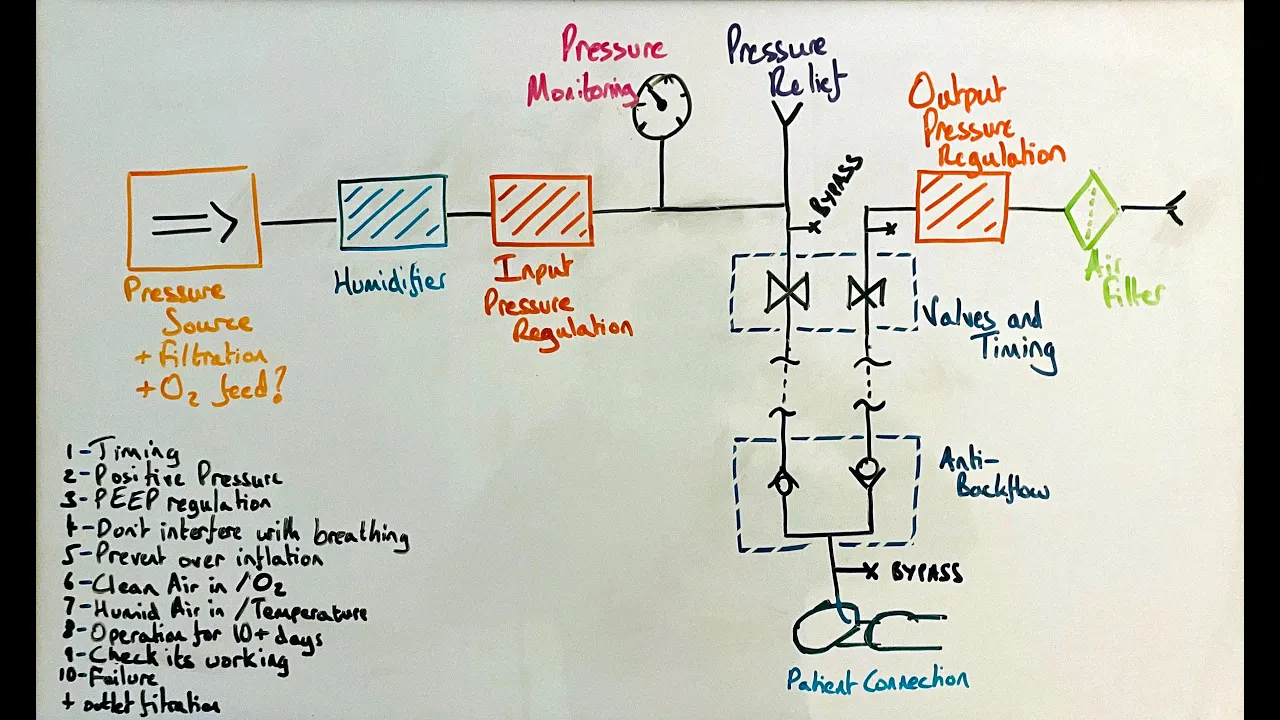 Pressure
Monitoring
Pressure
Relief
Output
Pressure
Regulation
BYPASS
Pressure
Source
+ Filtration
+ O₂ feed?
Humidifier
Input
Pressure
Regulation
Air
Filter
Valves and
Timing
Anti-
Backflow
BYPASS
Patient Connection
1-Timing
2-Positive Pressure
3-PEEP regulation
4-Don't interfere with breathing
5-Prevent over inflation
6-Clean Air in /O₂
7-Humid Air in /Temperature
8-Operation for 10+ days
9-Check its working
10-Failure
+ outlet filtration